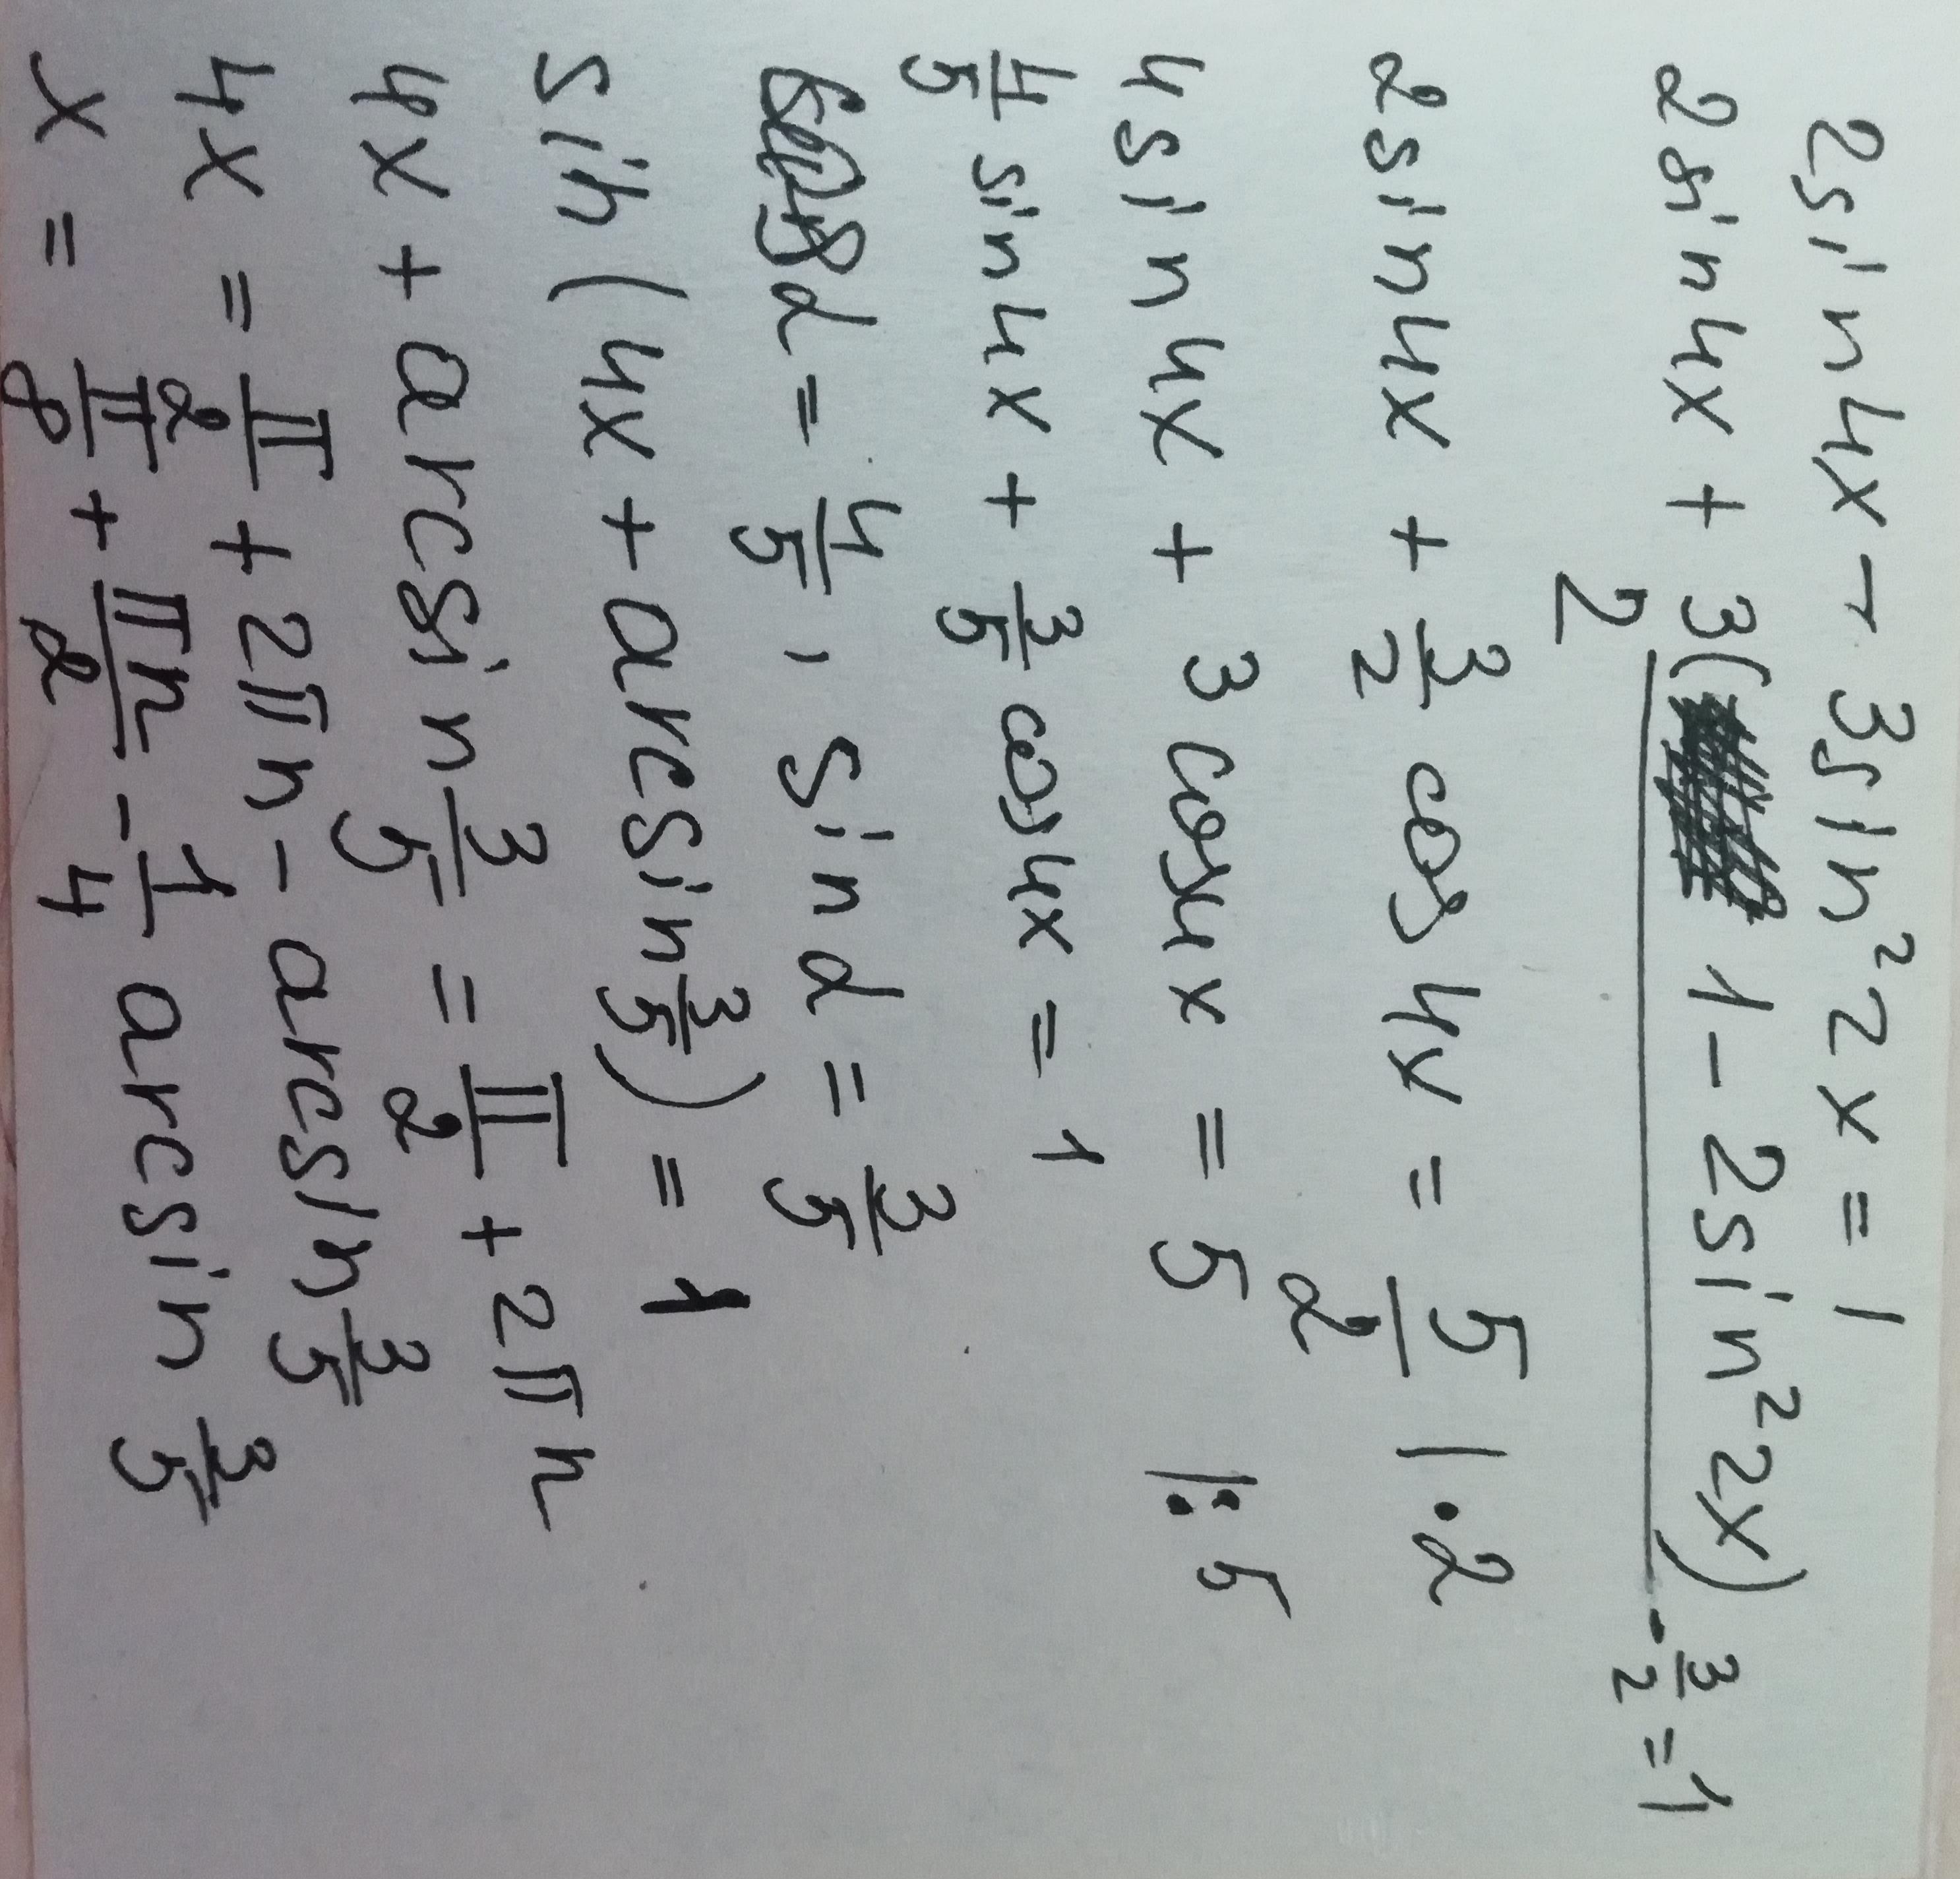 2sin4x - 3sin²2x = 1
2sin4x + 3(1 - 2sin²2x)/2 - 3/2 = 1
2sin4x + 3/2 cos4x = 5/2 |·2
4sin4x + 3cos4x = 5 |:5
4/5 sin4x + 3/5 cos4x = 1
cosα = 4/5, sinα = 3/5
sin(4x + arcsin 3/5) = 1
4x + arcsin 3/5 = π/2 + 2πn
4x = π/2 + 2πn - arcsin 3/5
x = π/8 + πn/2 - 1/4 arcsin 3/5